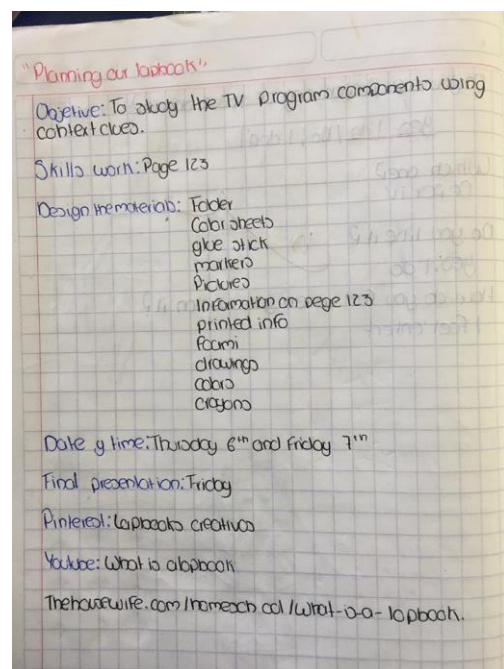 "Planning our lapbook"
Objetive: To study the TV program components using
context clues.
Skills work: Page 123
Design the materials: Folder
Color sheets
glue stick
markers
Pictures
Information on page 123
printed info
foami
drawings
colors
crayons
Date y time: Thursday 6th and Friday 7th
Final presentation: Friday
Pinterest: Lapbooks creativos
Youtube: What is a lapbook
Thehousewife.com/homeschool/what-is-a-lapbook.